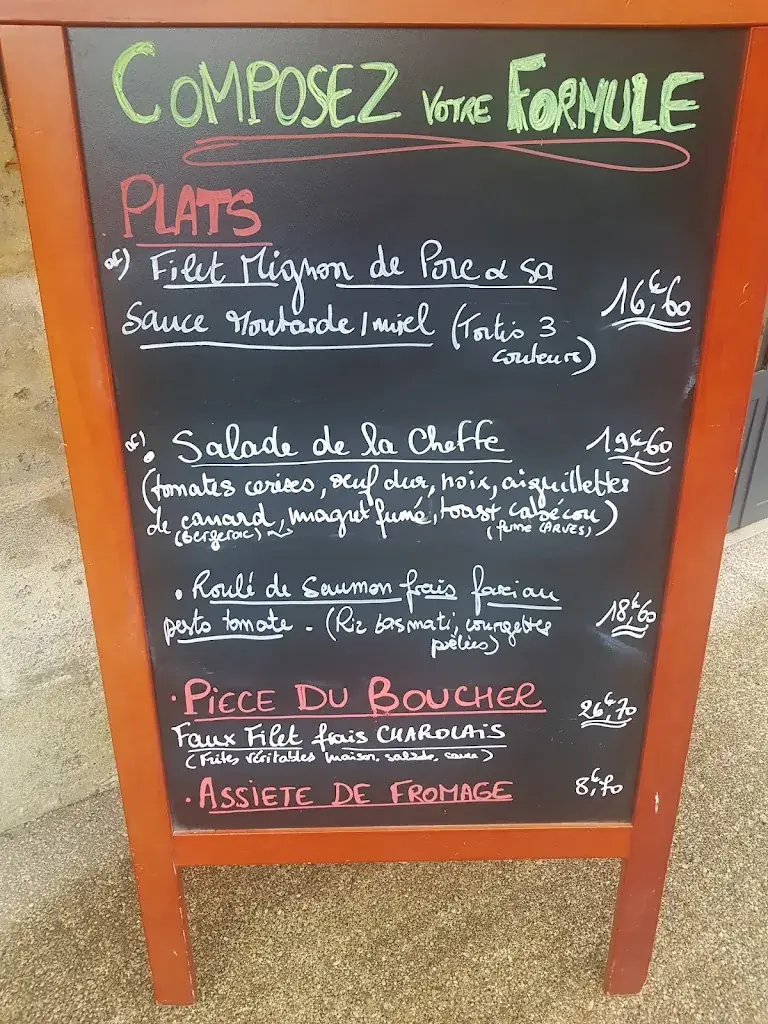 COMPOSEZ VOTRE FORMULE
PLATS
Filet Mignon de Porc & sa
Sauce Moutarde/miel (Tortis 3
couleurs)
16€,60
• Salade de la Cheffe
19€,60
(tomates cerises, oeuf dur, noix, aiguillettes
de canard, magret fumé, toast cabécou)
(Bergerac)
(fumé CARVES)
• Roulé de Saumon frais farci au
pesto tomate - (Riz basmati, courgettes
poêlées)
18€,60
• PIECE DU BOUCHER
26€,70
Faux Filet frais CHAROLAIS
(Frites véritables maison, salade, sauce)
• ASSIETE DE FROMAGE
8€,70